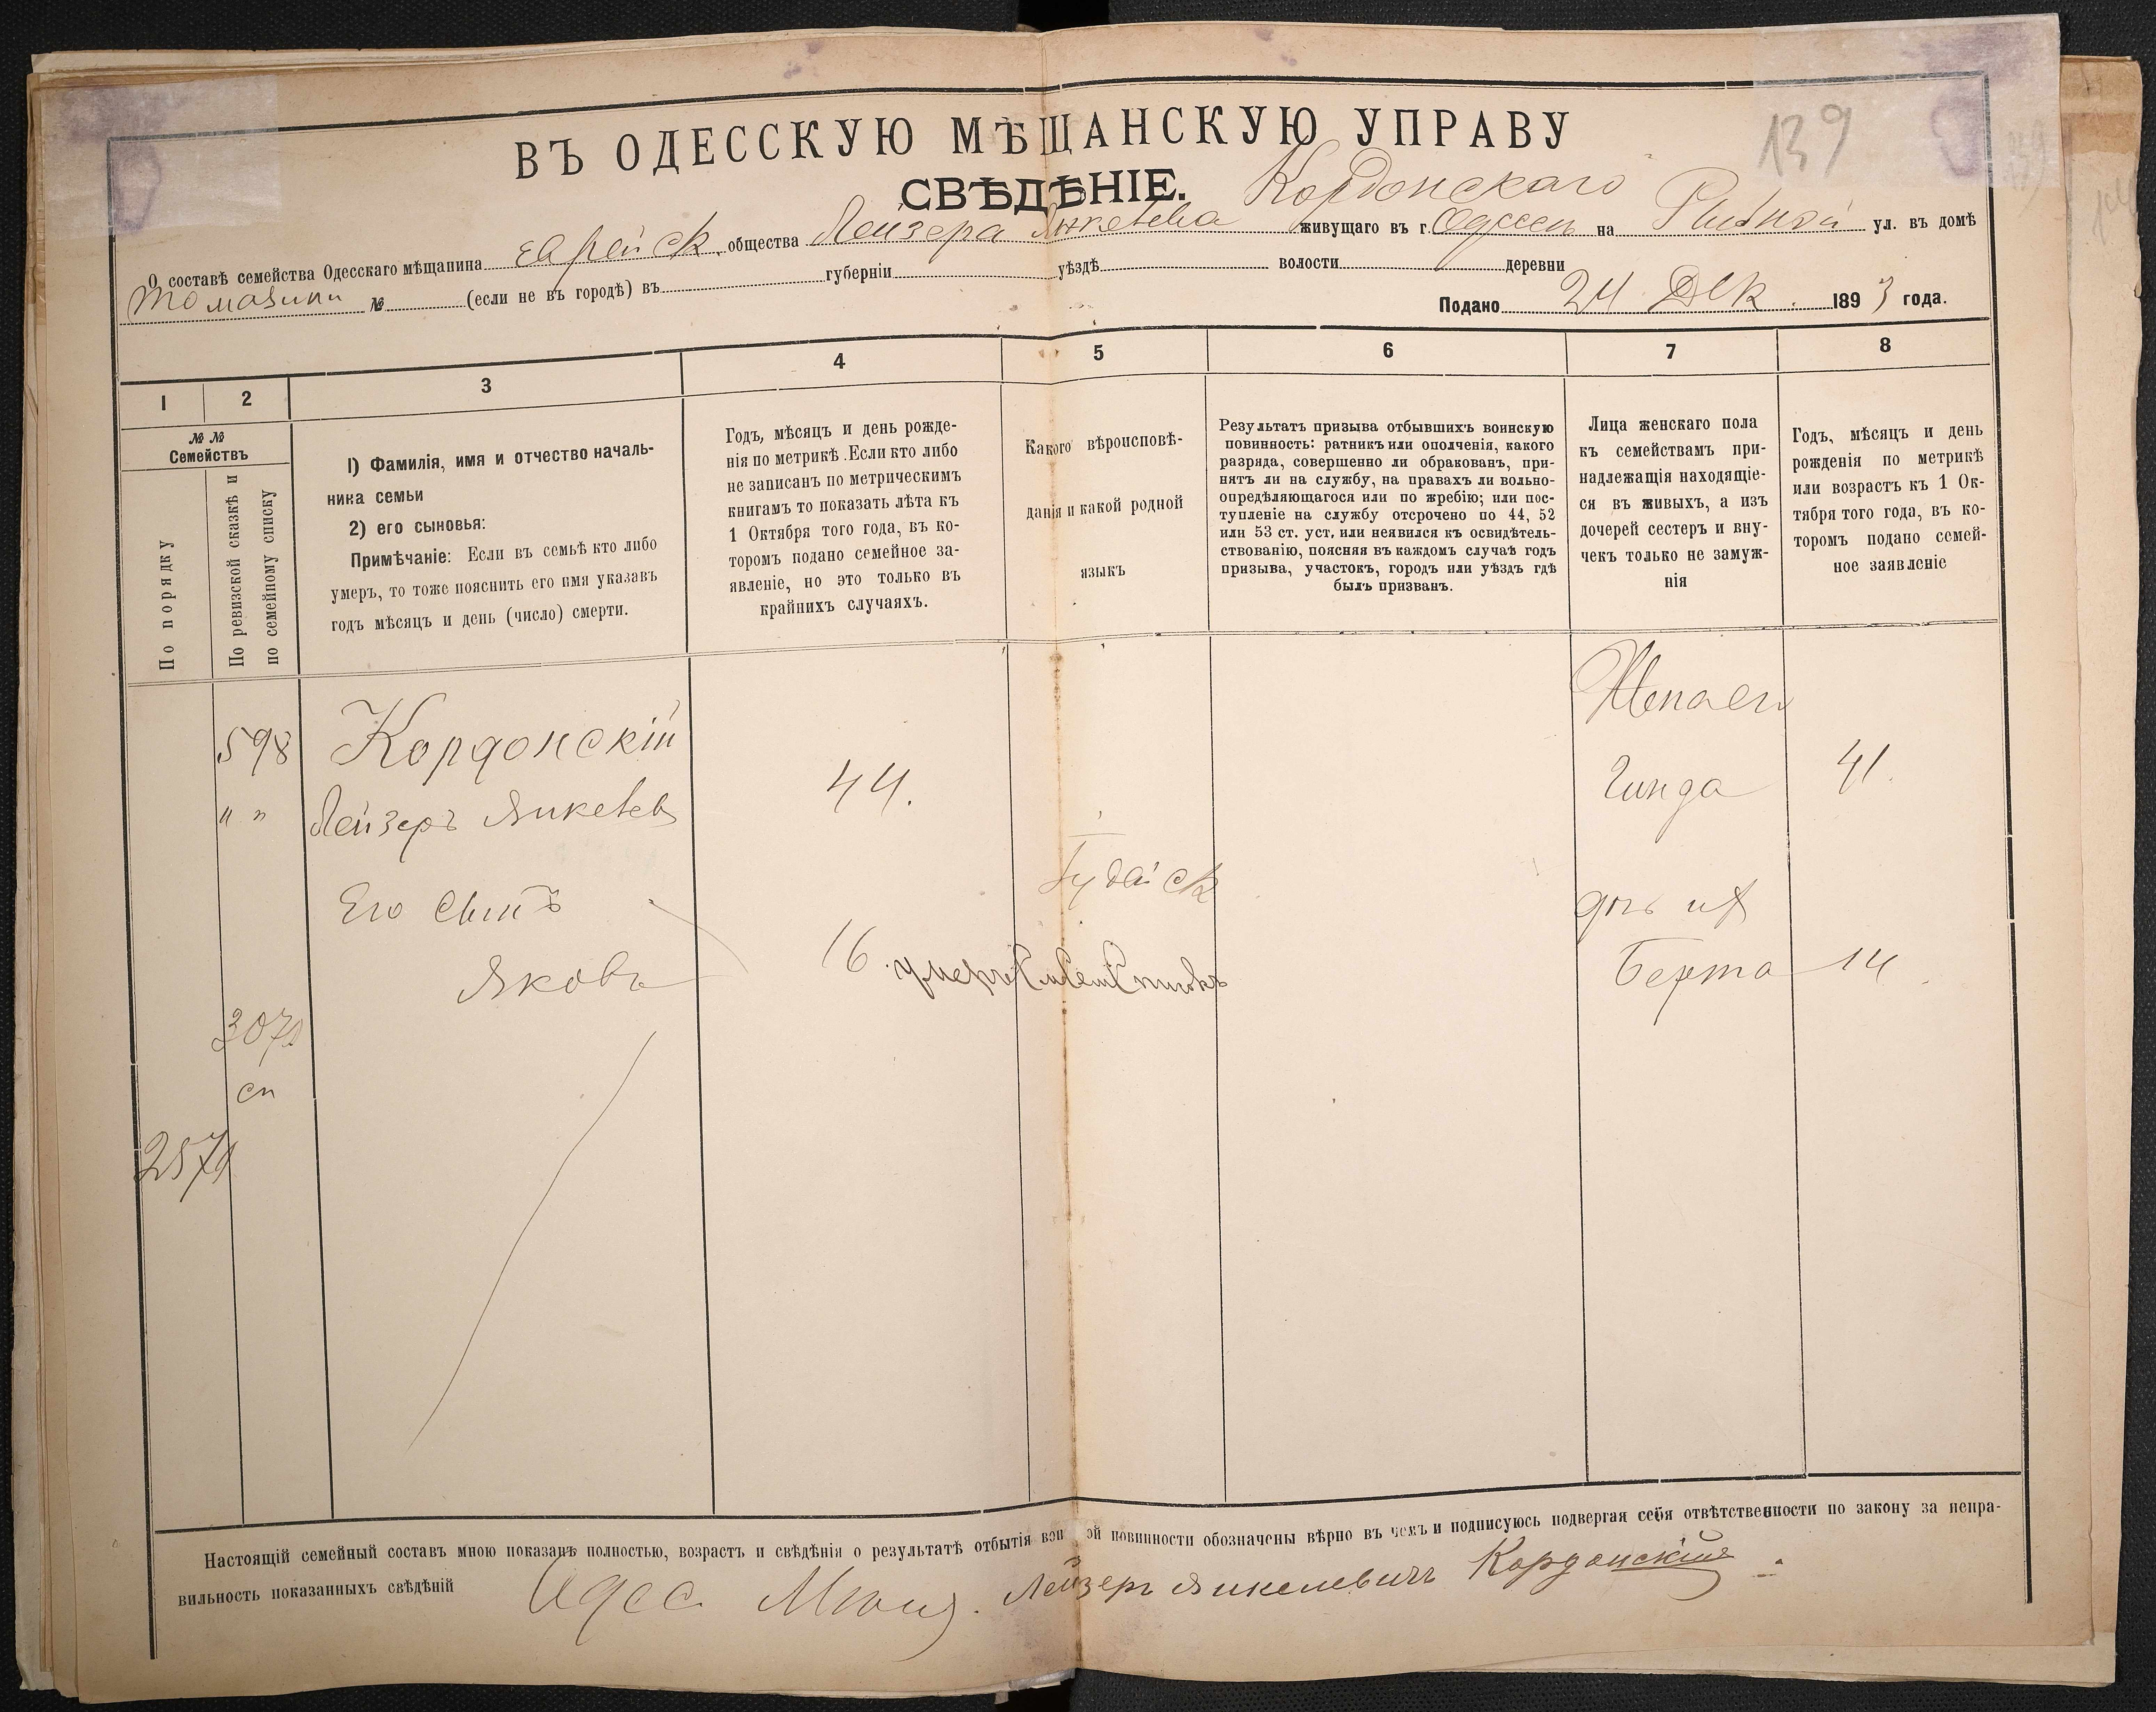 139
ВЪ ОДЕССКУЮ МѢЩАНСКУЮ УПРАВУ
СВѢДѢНІЕ.
Кордонскаго
О составѣ семейства Одесскаго мѣщанина еврейск. общества Лейзера Янкелева живущаго въ г. Одессѣ на Рыбной ул. въ домѣ
Томазини № (если не въ городѣ) въ губерніи уѣздѣ волости деревни
Подано 24 Дек. 1893 года.
1 2 3 4 5 6 7 8
№ № Семействъ
По порядку
По ревизской сказкѣ и
по семейному списку
1) Фамилія, имя и отчество началь-
ника семьи
2) его сыновья:
Примѣчаніе: Если въ семьѣ кто либо
умеръ, то тоже пояснить его имя указавъ
годъ мѣсяцъ и день (число) смерти.
Годъ, мѣсяцъ и день рожде-
нія по метрикѣ. Если кто либо
не записанъ по метрическимъ
книгамъ то показать лѣта къ
1 Октября того года, въ ко-
торомъ подано семейное за-
явленіе, но это только въ
крайнихъ случаяхъ.
Какого вѣроисповѣ-
данія и какой родной
языкъ
Результатъ призыва отбывшихъ воинскую
повинность: ратникъ или ополченія, какого
разряда, совершенно ли обракованъ, при-
нятъ ли на службу, на правахъ ли вольно-
опредѣляющагося или по жребію; или пос-
тупленіе на службу отсрочено по 44, 52
или 53 ст. уст. или неявился къ освидѣтель-
ствованію, поясняя въ каждомъ случаѣ годъ
призыва, участокъ, городъ или уѣздъ гдѣ
былъ призванъ.
Лица женскаго пола
къ семействамъ при-
надлежащія находящіе-
ся въ живыхъ, а изъ
дочерей сестеръ и вну-
чекъ только не замуж-
нія
Годъ, мѣсяцъ и день
рожденія по метрикѣ
или возрастъ къ 1 Ок-
тября того года, въ ко-
торомъ подано семей-
ное заявленіе
598 Кордонскій
" " Лейзеръ Янкелев 44. Гинда 41.
Іудейск
Его сынъ дочь их
Яковъ 16. Берта 14
307
сп
257
Настоящій семейный составъ мною показанъ полностью, возрастъ и свѣдѣнія о результатѣ отбытія воинской повинности обозначены вѣрно въ чемъ и подписуюсь подвергая себя отвѣтственности по закону за непра-
вильность показанныхъ свѣдѣній Одес. Мѣщ. Лейзеръ Янкелевичъ Кордонскій